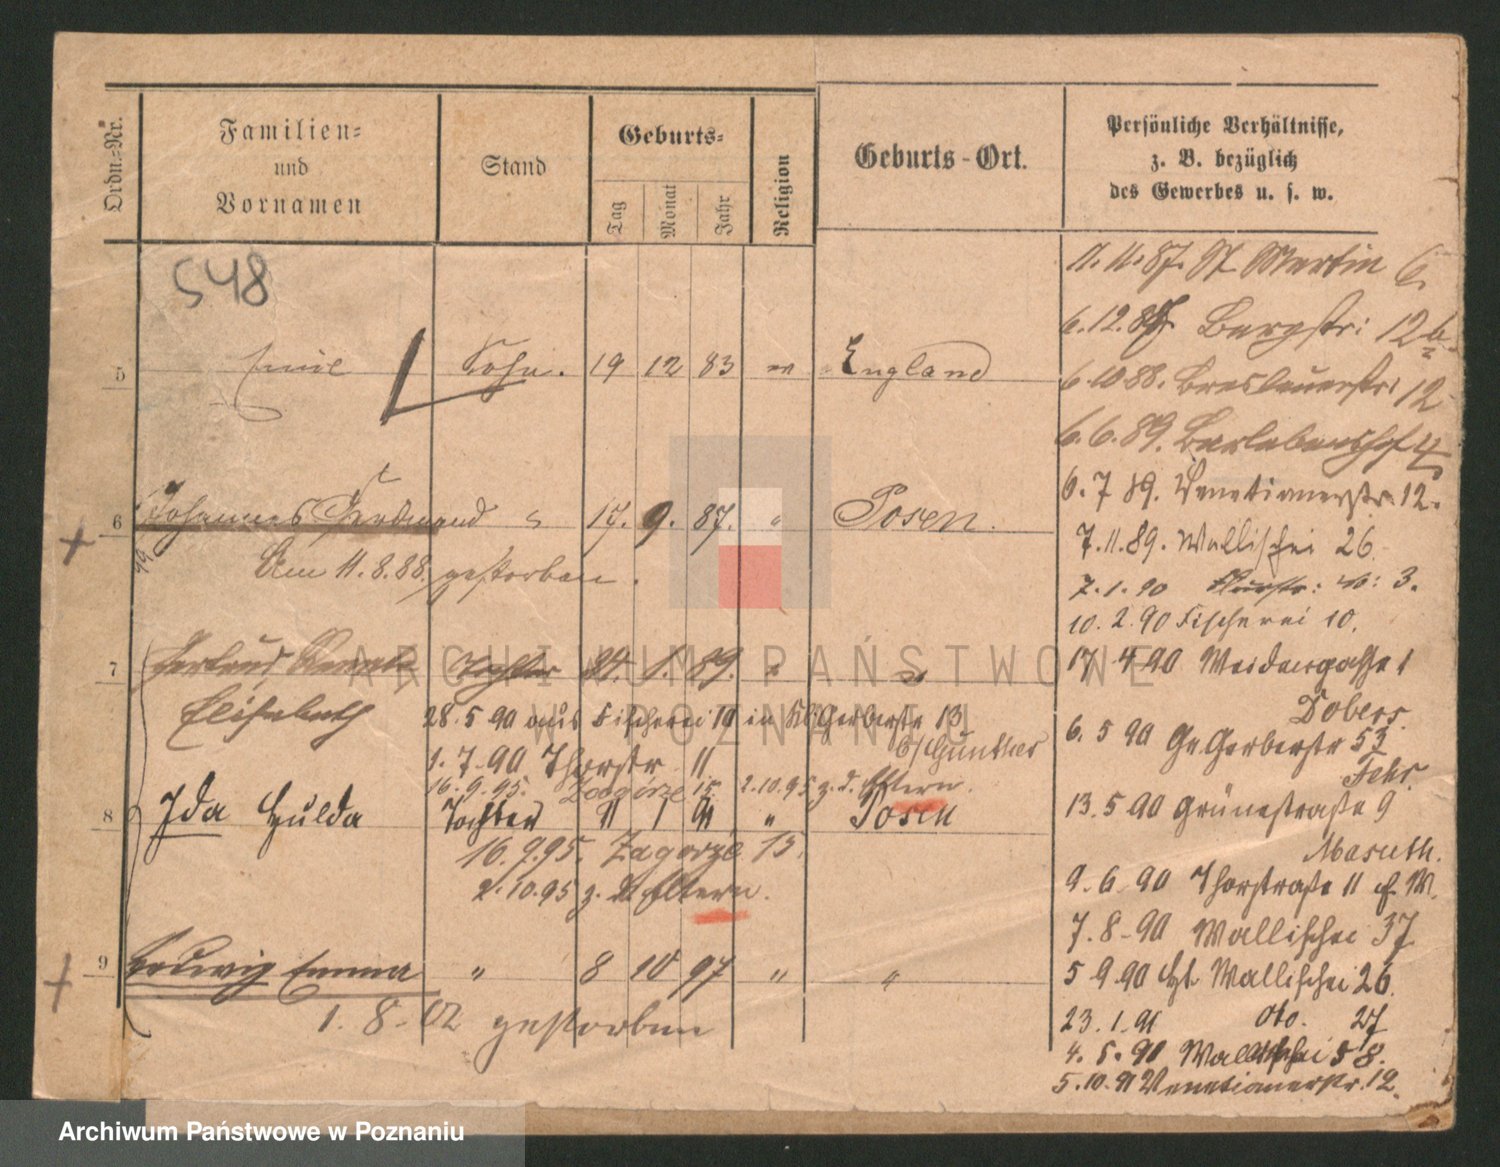 Ordn.-Nr.
Familien-
und
Vornamen
Stand
Geburts-
Tag
Monat
Jahr
Religion
Geburts-Ort.
Persönliche Verhältnisse,
z. B. bezüglich
des Gewerbes u. s. w.
548
5 Emil Sohn. 19 12 83 " England
6 Johannes Ferdinand " 17. 9. 87. " Posen.
Am 11.8.88. gestorben.
7 Gertrud Tochter 24. 1. 89. " "
Elisabeth
28.5 90 aus Fischerei 10 in Kl Gerberstr 13
b/ Günther
1.7.90 Thorstr 11
16.9.95. Zagórze 15 2.10.95 z. d. Eltern.
8 Ida Hulda Tochter 11 1 91 " Posen
16.9.95. Zagorze 15.
2.10.95 z. d. Eltern.
9 Hedwig Emma " 8 10 97 " "
1. 8. 02 gestorben
11.11.87. St Martin 6.
6.12.87 Bergstr: 12b.
6.10 88. Breslauerstr: 12
6.6.89. Berlebenshof 4
6.7 89. Venetianerstr. 12.
7.11.89. Wallischei 26.
7.1.90 3.
10.2.90 Fischerei 10.
17 4 90 Weidengasse 1
Dobers.
6. 5 90 Gr. Gerberstr 53
Fehr.
13.5 90 Grünestraße 9
Masuth.
9.6.90 Thorstraße 11
7.8.90 Wallischei 37
5 9.90 Wallischei 26.
23.1.91 dto. 27
4.5.91 Wallischei 58.
5.10.91 Venetianerstr. 12.
ARCHIWUM PAŃSTWOWE
W POZNANIU
Archiwum Państwowe w Poznaniu